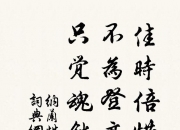 佳時倍惜
不為登高
只覺魂銷
納蘭性
詞典網